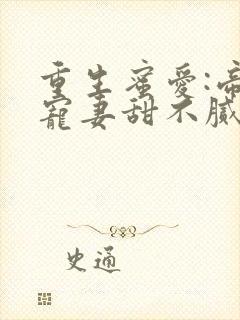 重生蜜愛:帝
寵妻甜不膩
史通